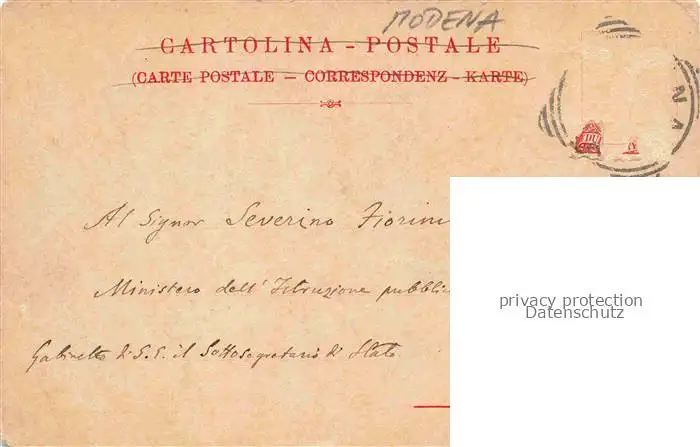 MODENA
CARTOLINA - POSTALE
(CARTE POSTALE — CORRESPONDENZ - KARTE)
NA
Al Signor Severino Fiorini
Ministero dell'Istruzione pubblic
Gabinetto di S. E. il Sottosegretario di Stato
privacy protection
Datenschutz